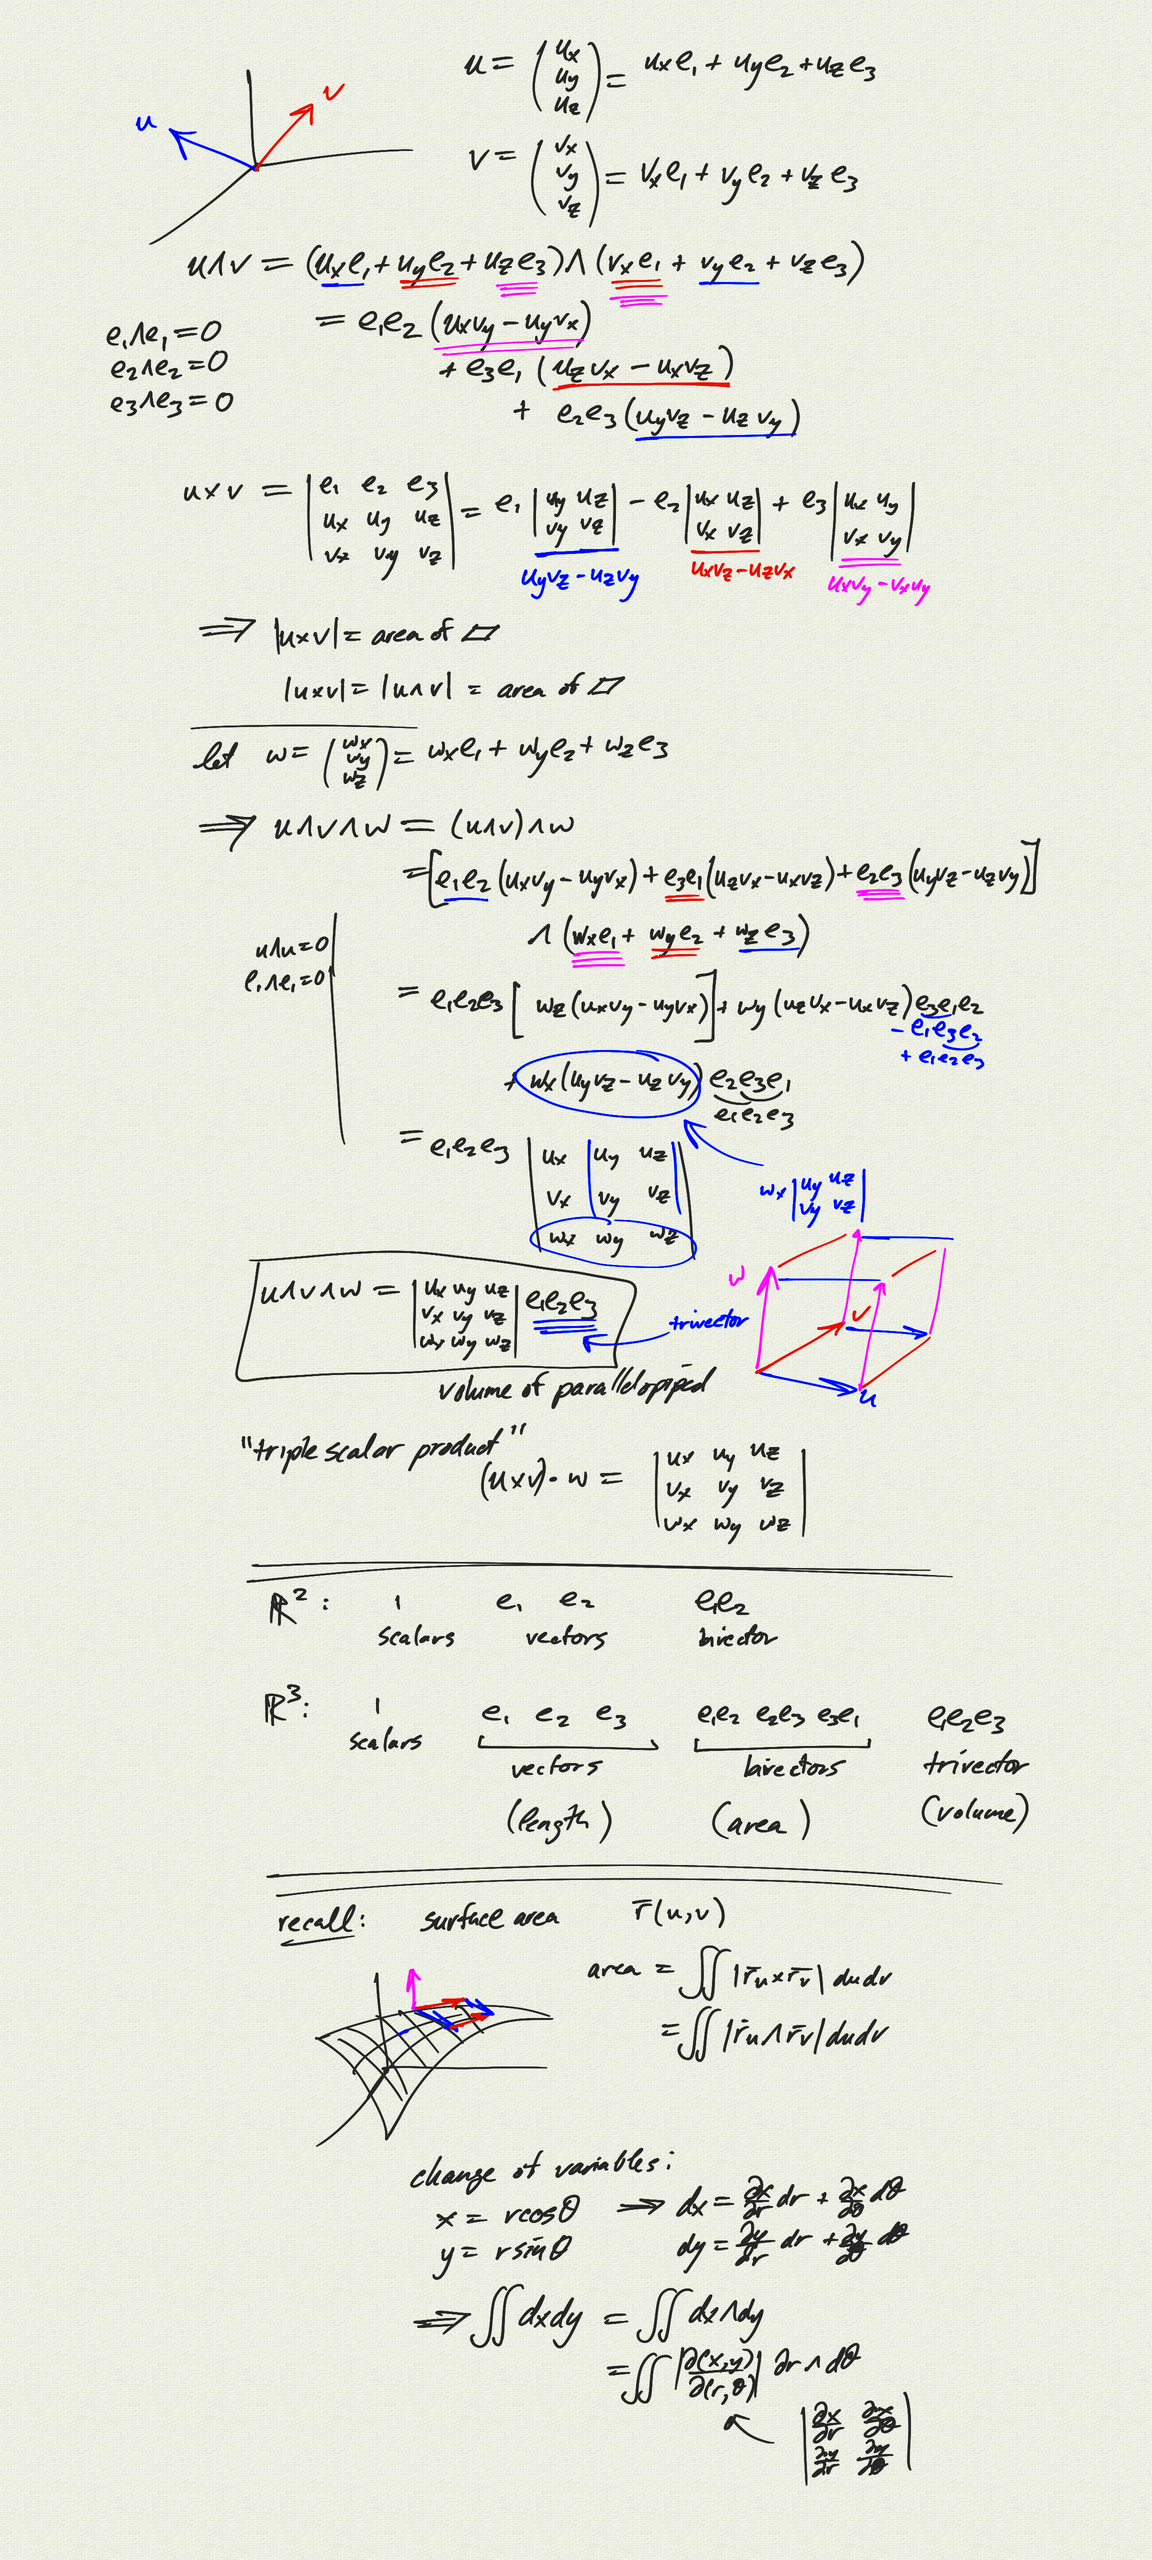 u v
u = (ux uy uz) = ux e1 + uy e2 + uz e3
v = (vx vy vz) = vx e1 + vy e2 + vz e3
u∧v = (ux e1 + uy e2 + uz e3) ∧ (vx e1 + vy e2 + vz e3)
e1∧e1 = 0
e2∧e2 = 0
e3∧e3 = 0
= e1e2 (ux vy − uy vx)
+ e3e1 (uz vx − ux vz)
+ e2e3 (uy vz − uz vy)
u×v = |e1 e2 e3; ux uy uz; vx vy vz| = e1 |uy uz; vy vz| − e2 |ux uz; vx vz| + e3 |ux uy; vx vy|
uy vz − uz vy ux vz − uz vx ux vy − vx uy
⟹ |u×v| = area of ▱
|u×v| = |u∧v| = area of ▱
let w = (wx wy wz) = wx e1 + wy e2 + wz e3
⟹ u∧v∧w = (u∧v)∧w
= [e1e2 (ux vy − uy vx) + e3e1 (uz vx − ux vz) + e2e3 (uy vz − uz vy)]
∧ (wx e1 + wy e2 + wz e3)
u∧u = 0
e1∧e1 = 0
= e1e2e3 [ wz (ux vy − uy vx) ] + wy (uz vx − ux vz) e3e1e2
− e1e3e2
+ e1e2e3
+ wx (uy vz − uz vy) e2e3e1
e1e2e3
= e1e2e3 |ux uy uz; vx vy vz; wx wy wz|
wx |uy uz; vy vz|
u∧v∧w = |ux uy uz; vx vy vz; wx wy wz| e1e2e3
trivector
w v u
volume of parallelopiped
"triple scalar product"
(u×v)·w = |ux uy uz; vx vy vz; wx wy wz|
ℝ²: 1 e1 e2 e1e2
scalars vectors bivector
ℝ³: 1 e1 e2 e3 e1e2 e2e3 e3e1 e1e2e3
scalars vectors bivectors trivector
(length) (area) (volume)
recall: surface area r̄(u,v)
area = ∬ |r̄u × r̄v| du dv
= ∬ |r̄u ∧ r̄v| du dv
change of variables:
x = r cosθ ⟹ dx = ∂x/∂r dr + ∂x/∂θ dθ
y = r sinθ dy = ∂y/∂r dr + ∂y/∂θ dθ
⟹ ∬ dx dy = ∬ dx∧dy
= ∬ |∂(x,y)/∂(r,θ)| ∂r ∧ dθ
|∂x/∂r ∂x/∂θ; ∂y/∂r ∂y/∂θ|